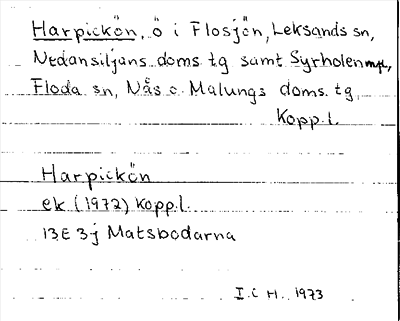 Harpickön, ö i Flosjön, Leksands sn,
Nedansiljans doms. tg samt Syrholen
Floda sn, Nås o. Malungs doms. tg,
Kopp. l.
Harpickön
ek (1972) Kopp. l.
13E 3j Matsbodarna
I. C H. 1973